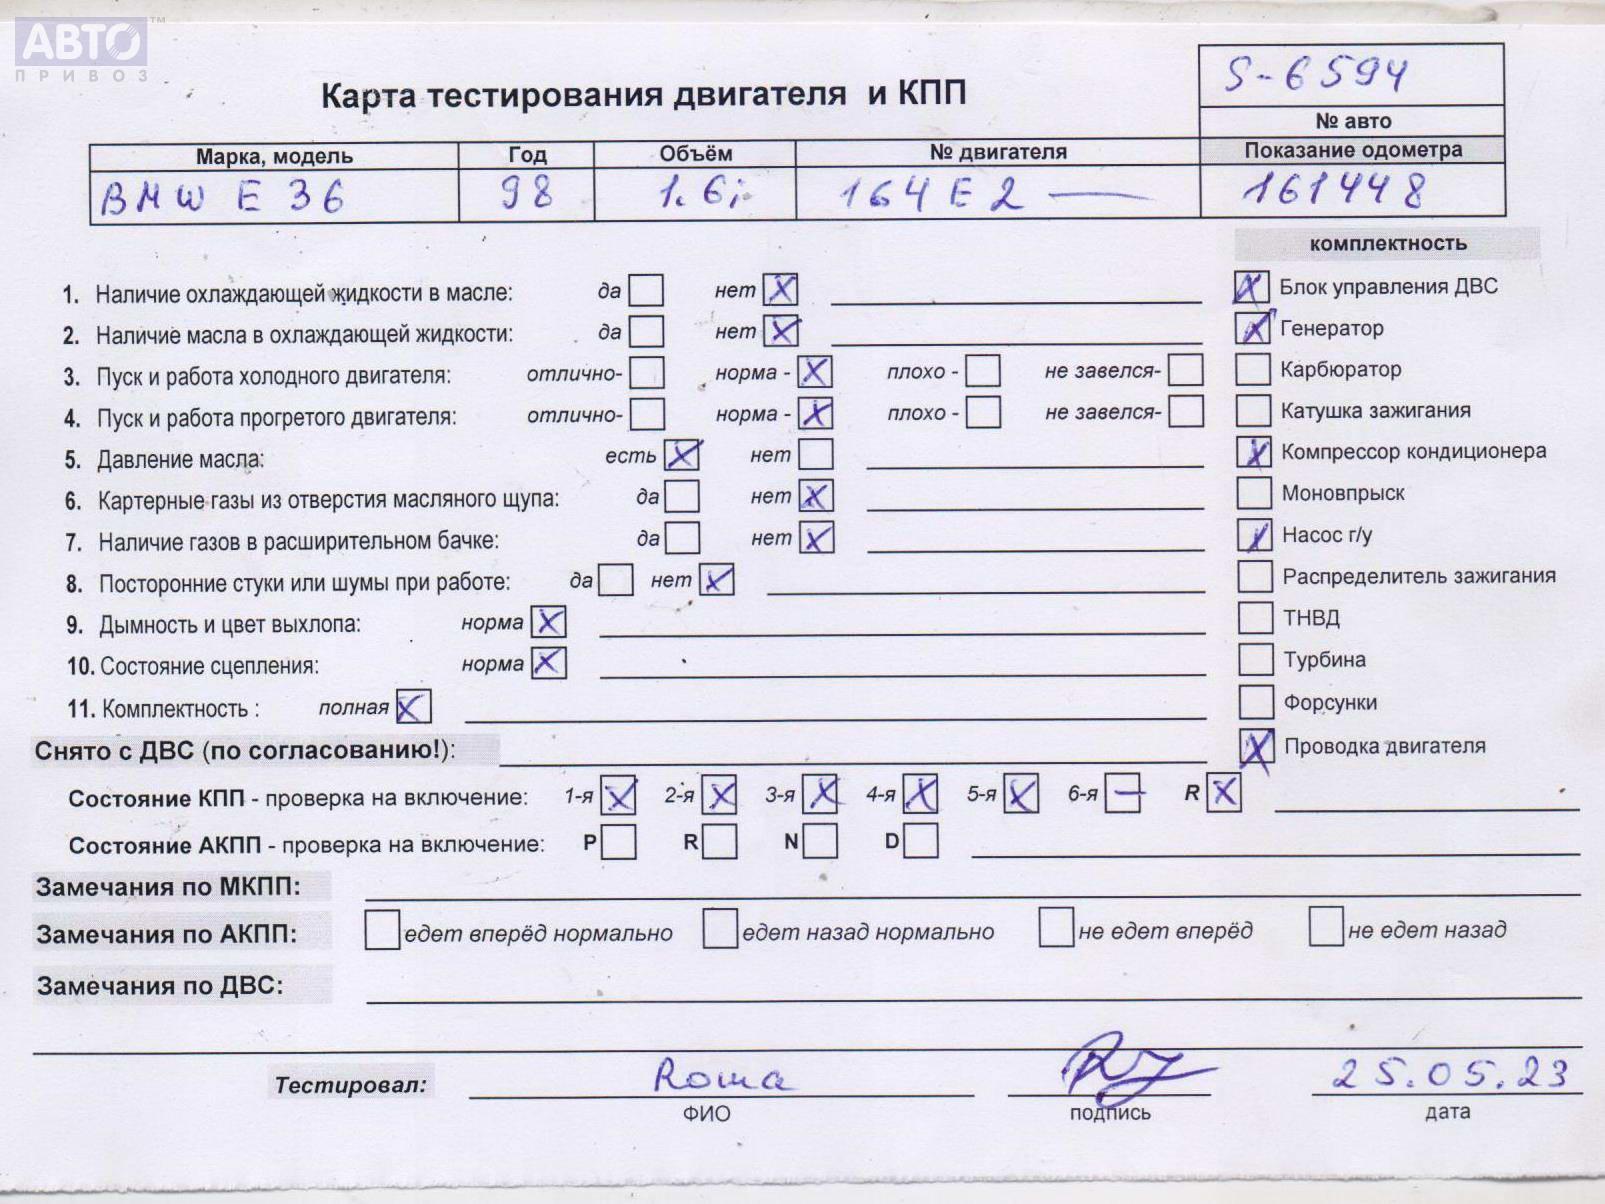 АВТО™
ПРИВОЗ
Карта тестирования двигателя и КПП
S-6594
№ авто
Марка, модель Год Объём № двигателя Показание одометра
BMW E 36 98 1.6i 164E2 — 161448
комплектность
1. Наличие охлаждающей жидкости в масле: да нет X
Блок управления ДВС X
2. Наличие масла в охлаждающей жидкости: да нет X
Генератор X
3. Пуск и работа холодного двигателя: отлично- норма - X плохо - не завелся-
Карбюратор
4. Пуск и работа прогретого двигателя: отлично- норма - X плохо - не завелся-
Катушка зажигания
5. Давление масла: есть X нет
X Компрессор кондиционера
6. Картерные газы из отверстия масляного щупа: да нет X
Моновпрыск
7. Наличие газов в расширительном бачке: да нет X
X Насос г/у
8. Посторонние стуки или шумы при работе: да нет X
Распределитель зажигания
9. Дымность и цвет выхлопа: норма X
ТНВД
10. Состояние сцепления: норма X
Турбина
11. Комплектность : полная X
Форсунки
Снято с ДВС (по согласованию!):
X Проводка двигателя
Состояние КПП - проверка на включение: 1-я X 2-я X 3-я X 4-я X 5-я X 6-я — R X
Состояние АКПП - проверка на включение: P R N D
Замечания по МКПП:
Замечания по АКПП: едет вперёд нормально едет назад нормально не едет вперёд не едет назад
Замечания по ДВС:
Тестировал: Рома 25.05.23
ФИО подпись дата